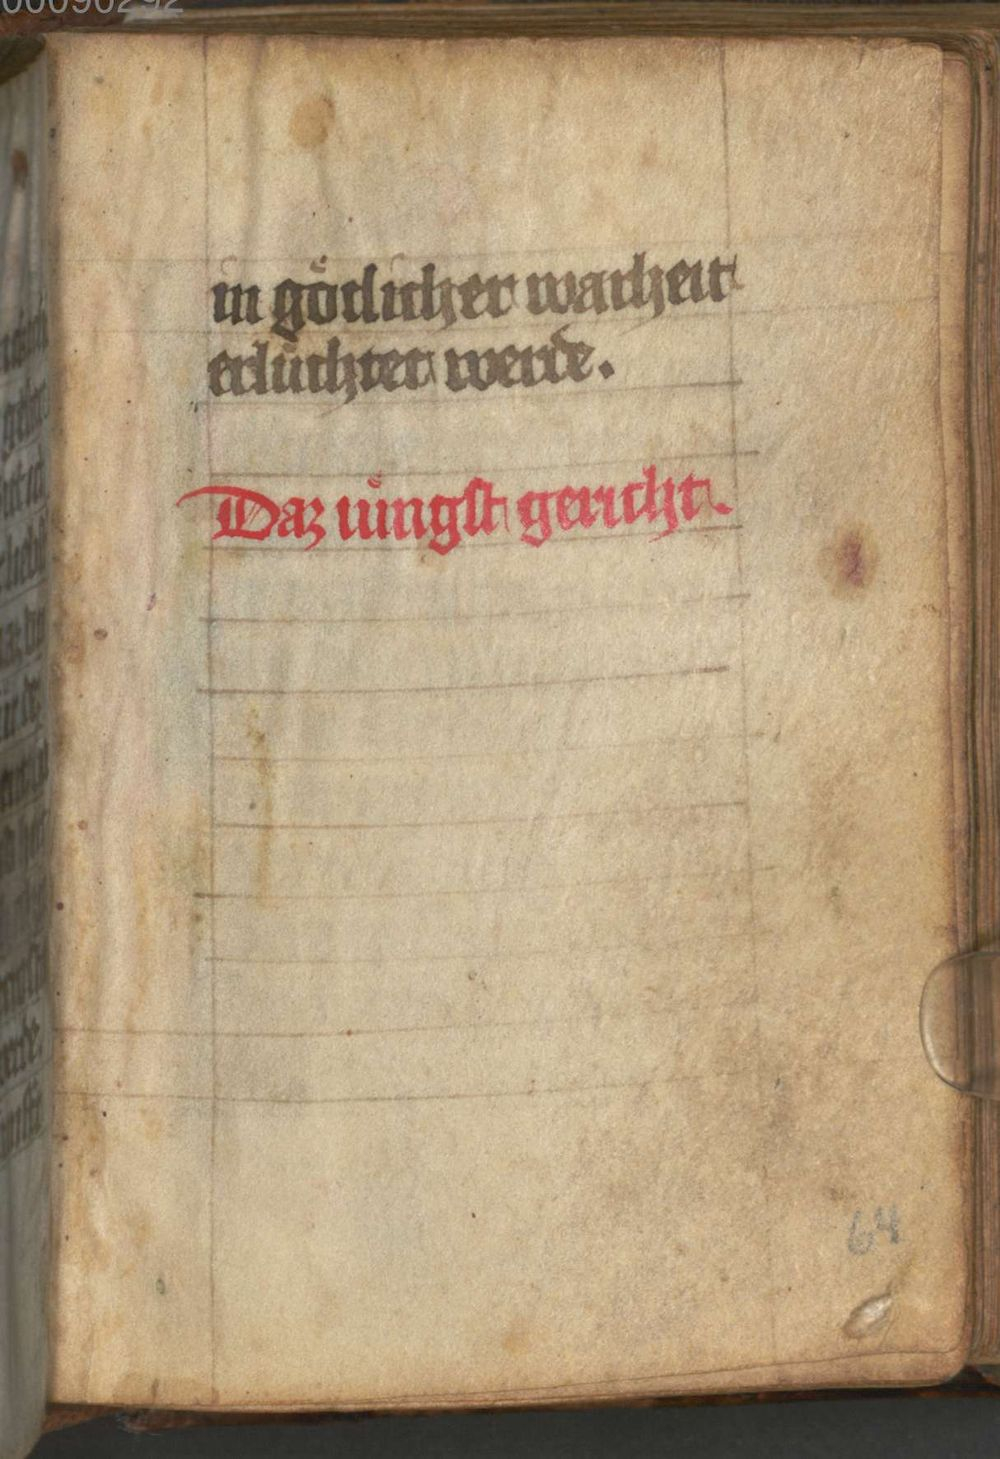 00090292
in goͤtlicher warheit
erluͤchtet werde.
Daz iuͤngst gericht.
64